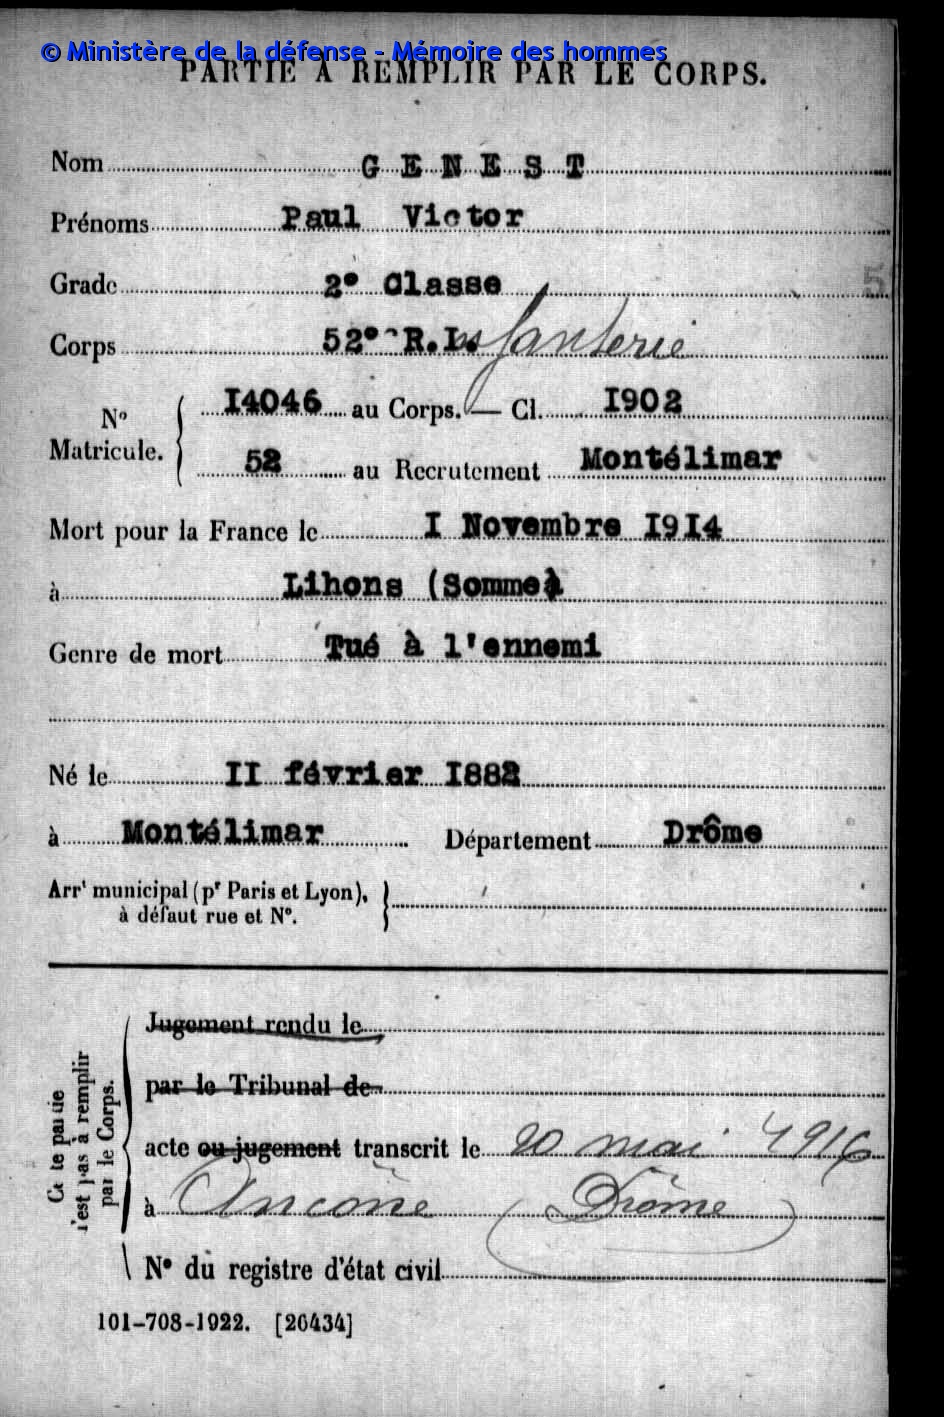 © Ministère de la défense - Mémoire des hommes
PARTIE A REMPLIR PAR LE CORPS.
Nom G E N E S T
Prénoms Paul Victor
Grade 2° Classe
Corps 52° R.I. Infanterie
N° Matricule. 14046 au Corps. — Cl. 1902
52 au Recrutement Montélimar
Mort pour la France le I Novembre 1914
à Lihons (Somme)
Genre de mort Tué à l'ennemi
Né le II février 1882
à Montélimar Département Drôme
Arrt municipal (pr Paris et Lyon),
à défaut rue et N°.
Cette partie
n'est pas à remplir
par le Corps.
Jugement rendu le
par le Tribunal de
acte ou jugement transcrit le 20 mai 1916
à Ancône (Drôme)
N° du registre d'état civil
101-708-1922. [26434]